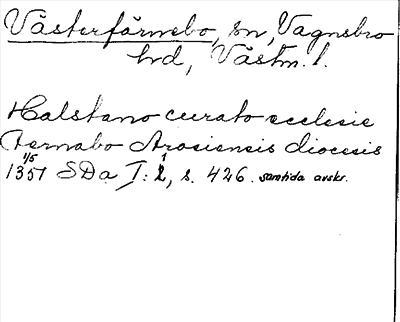 Västerfärnebo, sn, Vagnsbro
hd, Västm. l.
Halstano curato ecclesie
Fernabo Arosiensis diocesis
1/5
1351 SDa I: 2, s. 426. samtida avskr.